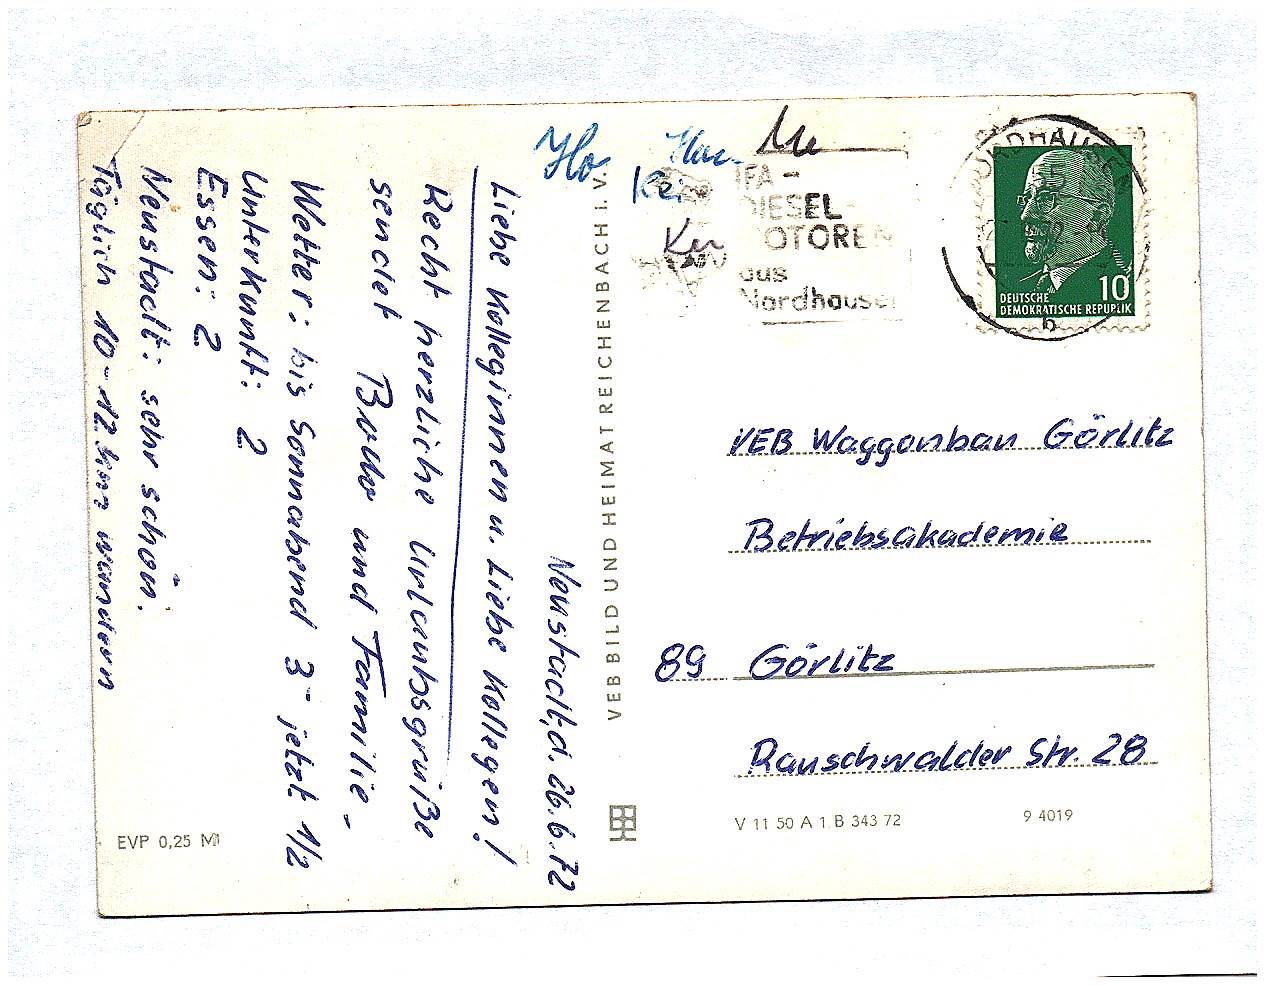 Neustadt, d. 26.6.72
Liebe Kolleginnen u. Liebe Kollegen!
Recht herzliche Urlaubsgrüße
sendet und Familie.
Wetter: bis Sonnabend 3- jetzt 1/2
Unterkunft: 2
Essen: 2
Neustadt: sehr schön.
Täglich 10-12 km wandern
EVP 0,25 M
VEB BILD UND HEIMAT REICHENBACH I. V.
IFA-
DIESEL-
MOTOREN
aus
Nordhausen
NORDHAUSEN
b
10
DEUTSCHE
DEMOKRATISCHE REPUBLIK
VEB Waggonbau Görlitz
Betriebsakademie
89 Görlitz
Rauschwalder Str. 28
V 11 50 A 1 B 343 72 9 4019